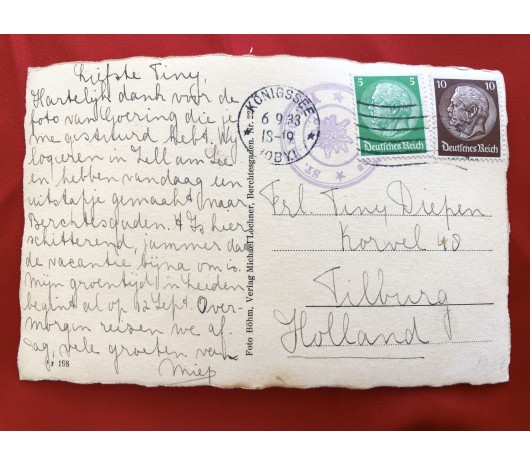 Liefste Tiny,
Hartelijk dank voor de
foto van Goering die je
me gestuurd hebt. Wij
logeren in Zell am See
en hebben vandaag een
uitstapje gemaakt naar
Berchtesgaden. 't Is hier
schitterend, jammer dat
de vacantie bijna om is.
Mijn groentijd in Leiden
begint al op 12 Sept. Over-
morgen reizen we af.
Dag, vele groeten van
Miep
r 198
Foto Böhm, Verlag Michael Lochner, Berchtesgaden. Nr.
KÖNIGSSEE
6.9.33
18-19
(OBY.)
ST.
5 5
Deutsches Reich
10 10
Deutsches Reich
Frl. Tiny Diepen
Korvel 48
Tilburg
Holland